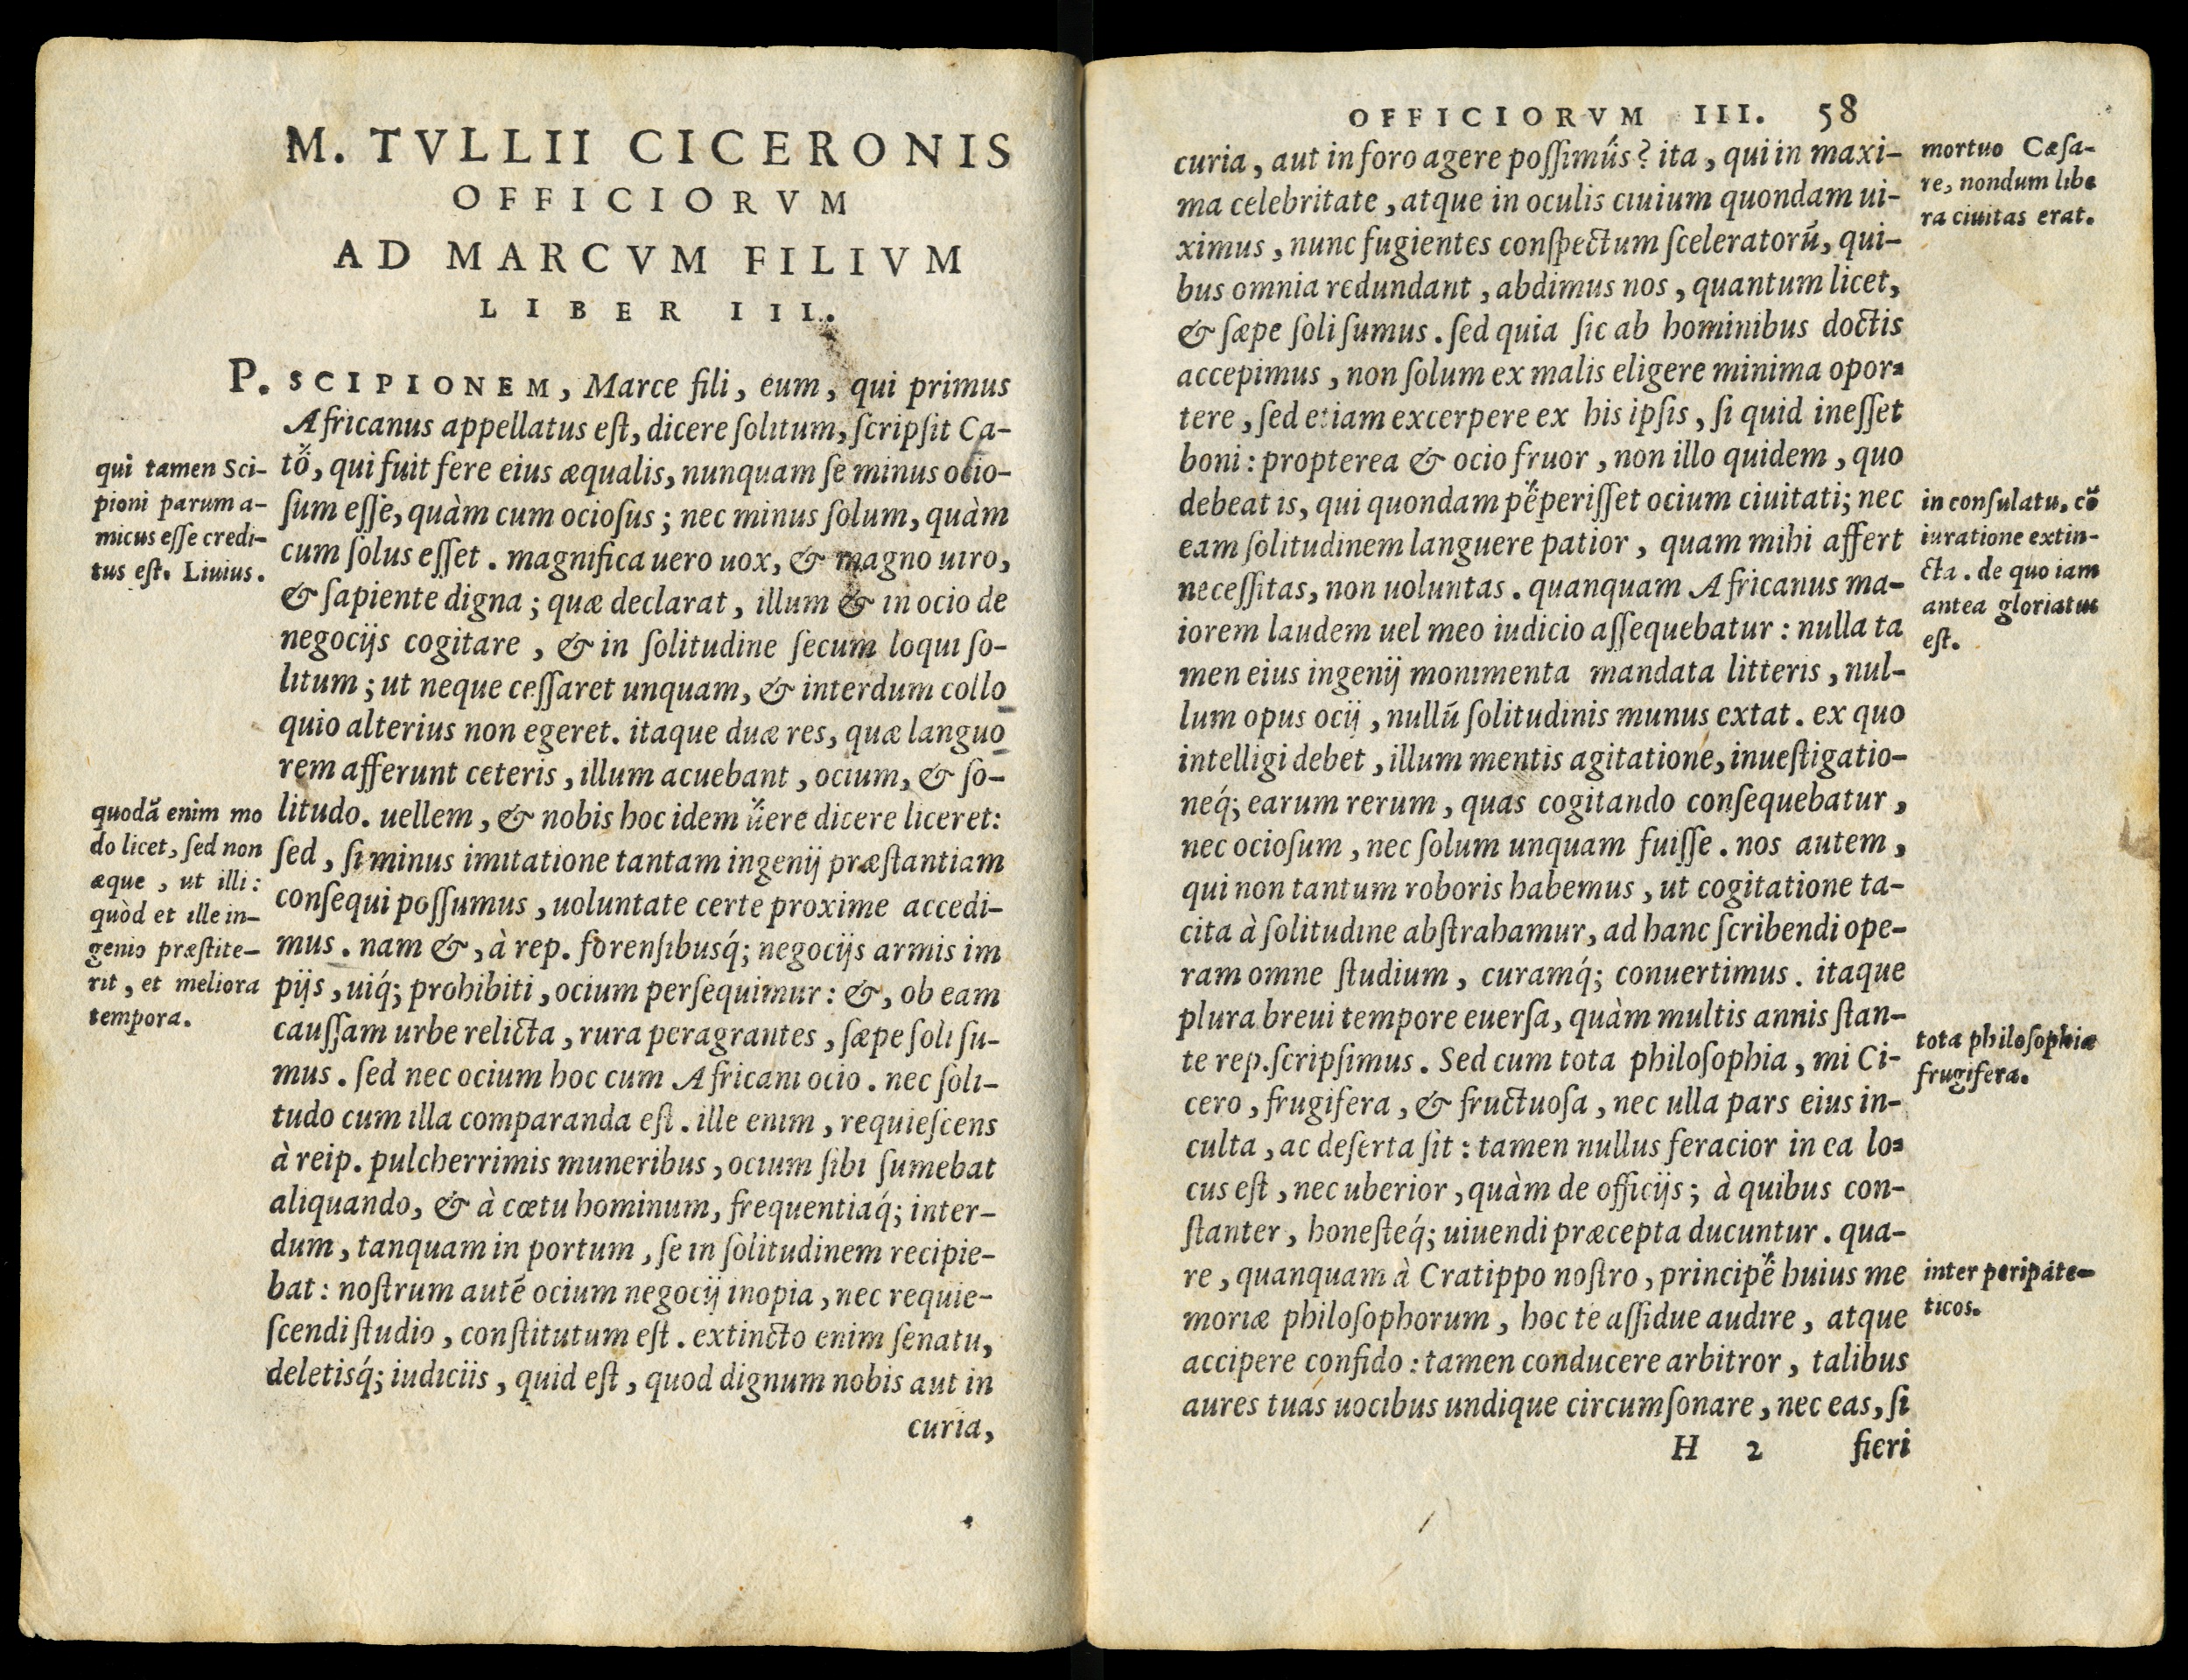 M. TVLLII CICERONIS
OFFICIORVM
AD MARCVM FILIVM
LIBER III.
P. SCIPIONEM, Marce fili, eum, qui primus
Africanus appellatus eſt, dicere ſolitum, ſcripſit Ca-
tő, qui fuit fere eius æqualis, nunquam ſe minus ocio-
ſum eſſe, quàm cum ocioſus; nec minus ſolum, quàm
cum ſolus eſſet. magnifica uero uox, & magno uiro,
& ſapiente digna; quæ declarat, illum & in ocio de
negocijs cogitare, & in ſolitudine ſecum loqui ſo-
litum; ut neque ceſſaret unquam, & interdum collo
quio alterius non egeret. itaque duæ res, quæ languo
rem afferunt ceteris, illum acuebant, ocium, & ſo-
litudo. uellem, & nobis hoc idem űere dicere liceret:
ſed, ſi minus imitatione tantam ingenij præſtantiam
conſequi poſſumus, uoluntate certe proxime accedi-
mus. nam &, à rep. forenſibusq́; negocijs armis im
pijs, uiq́; prohibiti, ocium perſequimur: &, ob eam
cauſſam urbe relicta, rura peragrantes, ſæpe ſoli ſu-
mus. ſed nec ocium hoc cum Africani ocio. nec ſoli-
tudo cum illa comparanda eſt. ille enim, requieſcens
à reip. pulcherrimis muneribus, ocium ſibi ſumebat
aliquando, & à cœtu hominum, frequentiaq́; inter-
dum, tanquam in portum, ſe in ſolitudinem recipie-
bat: noſtrum autē ocium negocij inopia, nec requie-
ſcendi ſtudio, conſtitutum eſt. extincto enim ſenatu,
deletisq́; iudiciis, quid eſt, quod dignum nobis aut in
curia,
qui tamen Sci-
pioni parum a-
micus eſſe credi-
tus eſt. Liuius.
quodã enim mo
do licet, ſed non
æque, ut illi:
quòd et ille in-
genio præſtite-
rit, et meliora
tempora.
OFFICIORVM III. 58
curia, aut in foro agere poſſiműs? ita, qui in maxi-
ma celebritate, atque in oculis ciuium quondam ui-
ximus, nunc fugientes conſpectum ſceleratorū, qui-
bus omnia redundant, abdimus nos, quantum licet,
& ſæpe ſoli ſumus. ſed quia ſic ab hominibus doctis
accepimus, non ſolum ex malis eligere minima opor-
tere, ſed etiam excerpere ex his ipſis, ſi quid ineſſet
boni: propterea & ocio fruor, non illo quidem, quo
debeat is, qui quondam pe̋periſſet ocium ciuitati; nec
eam ſolitudinem languere patior, quam mihi affert
neceſſitas, non uoluntas. quanquam Africanus ma-
iorem laudem uel meo iudicio aſſequebatur: nulla ta
men eius ingenij monimenta mandata litteris, nul-
lum opus ocij, nullū ſolitudinis munus extat. ex quo
intelligi debet, illum mentis agitatione, inueſtigatio-
neq́; earum rerum, quas cogitando conſequebatur,
nec ocioſum, nec ſolum unquam fuiſſe. nos autem,
qui non tantum roboris habemus, ut cogitatione ta-
cita à ſolitudine abſtrahamur, ad hanc ſcribendi ope-
ram omne ſtudium, curamq́; conuertimus. itaque
plura breui tempore euerſa, quàm multis annis ſtan-
te rep. ſcripſimus. Sed cum tota philoſophia, mi Ci-
cero, frugifera, & fructuoſa, nec ulla pars eius in-
culta, ac deſerta ſit: tamen nullus feracior in ea lo-
cus eſt, nec uberior, quàm de officijs; à quibus con-
ſtanter, honeſteq́; uiuendi præcepta ducuntur. qua-
re, quanquam à Cratippo noſtro, principe̋ huius me
moriæ philoſophorum, hoc te aſſidue audire, atque
accipere confido: tamen conducere arbitror, talibus
aures tuas uocibus undique circumſonare, nec eas, ſi
H 2 fieri
mortuo Cæſa-
re, nondum libe
ra ciuitas erat.
in conſulatu. cő
iuratione extin-
cta. de quo iam
antea gloriatus
eſt.
tota philoſophia
frugifera.
inter peripate-
ticos.